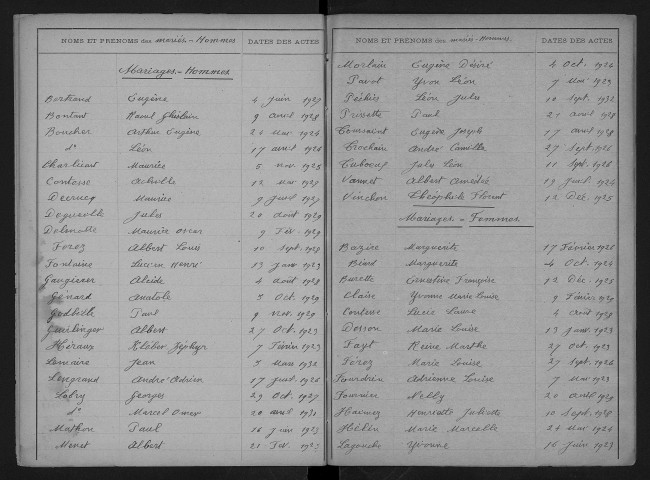 NOMS ET PRÉNOMS des mariés - Hommes DATES DES ACTES
Mariages - Hommes
Bertrand Eugène 4 Juin 1927
Bontant Raoul Ghislain 9 avril 1928
Boucher Arthur Eugène 24 Mai 1924
do Léon 17 avril 1926
Charlicart Maurice 5 nov 1925
Contesse Achille 12 Mai 1927
Decrucq Maurice 9 Juil 1927
Deguielle Jules 20 août 1929
Delmolle Maurice Oscar 9 Fév. 1929
Férez Albert Louis 10 Sept. 1928
Fontaine Lucien Henri 13 Janv 1923
Gaugierer Alcide 4 août 1928
Génard Anatole 5 Oct. 1929
Godbille Paul 9 nov. 1929
Guerlinger Albert 27 Oct. 1923
Héraux Kleber Zéphyr 7 Févr 1923
Lemaire Jean 5 Mars 1932
Lengrand André Adrien 17 Juil. 1926
Lobry Georges 29 Oct. 1927
do Marcel Omer 20 avril 1931
Mathon Paul 16 Juin 1923
Menet Albert 21 Fév. 1925
NOMS ET PRÉNOMS des mariés - Hommes DATES DES ACTES
Morlain Eugène Désiré 4 Oct. 1924
Pavot Yvon Léon 7 Mai 1923
Péchiès Léon Jules 10 Sept. 1932
Prissette Paul 21 août 1928
Toursaint Eugène Joseph 17 avril 1928
Crochain André Camille 27 Sept. 1926
Cuboeuf Jules Léon 11 Sept. 1926
Vannet Albert Amédée 19 Juil. 1924
Vinchon Théophile Florent 12 Déc. 1925
Mariages - Femmes
Bazire Marguerite 17 Février 1926
Béard Marguerite 4 Oct. 1924
Burette Ernestine Françoise 12 Déc. 1925
Claise Yvonne Marie Louise 9 Février 1929
Contesse Lucie Laure 4 août 1928
Dosson Marie Louise 13 Janv 1923
Fayt Reine Marthe 27 Oct. 1923
Férez Marie Louise 27 Sept. 1926
Fourdrin Adrienne Louise 7 Mai 1923
Fournier Nelly 20 août 1929
Hainez Henriette Juliette 10 Sept. 1928
Hélin Marie Marcelle 24 Mai 1924
Lagouche Yvonne 16 Juin 1923